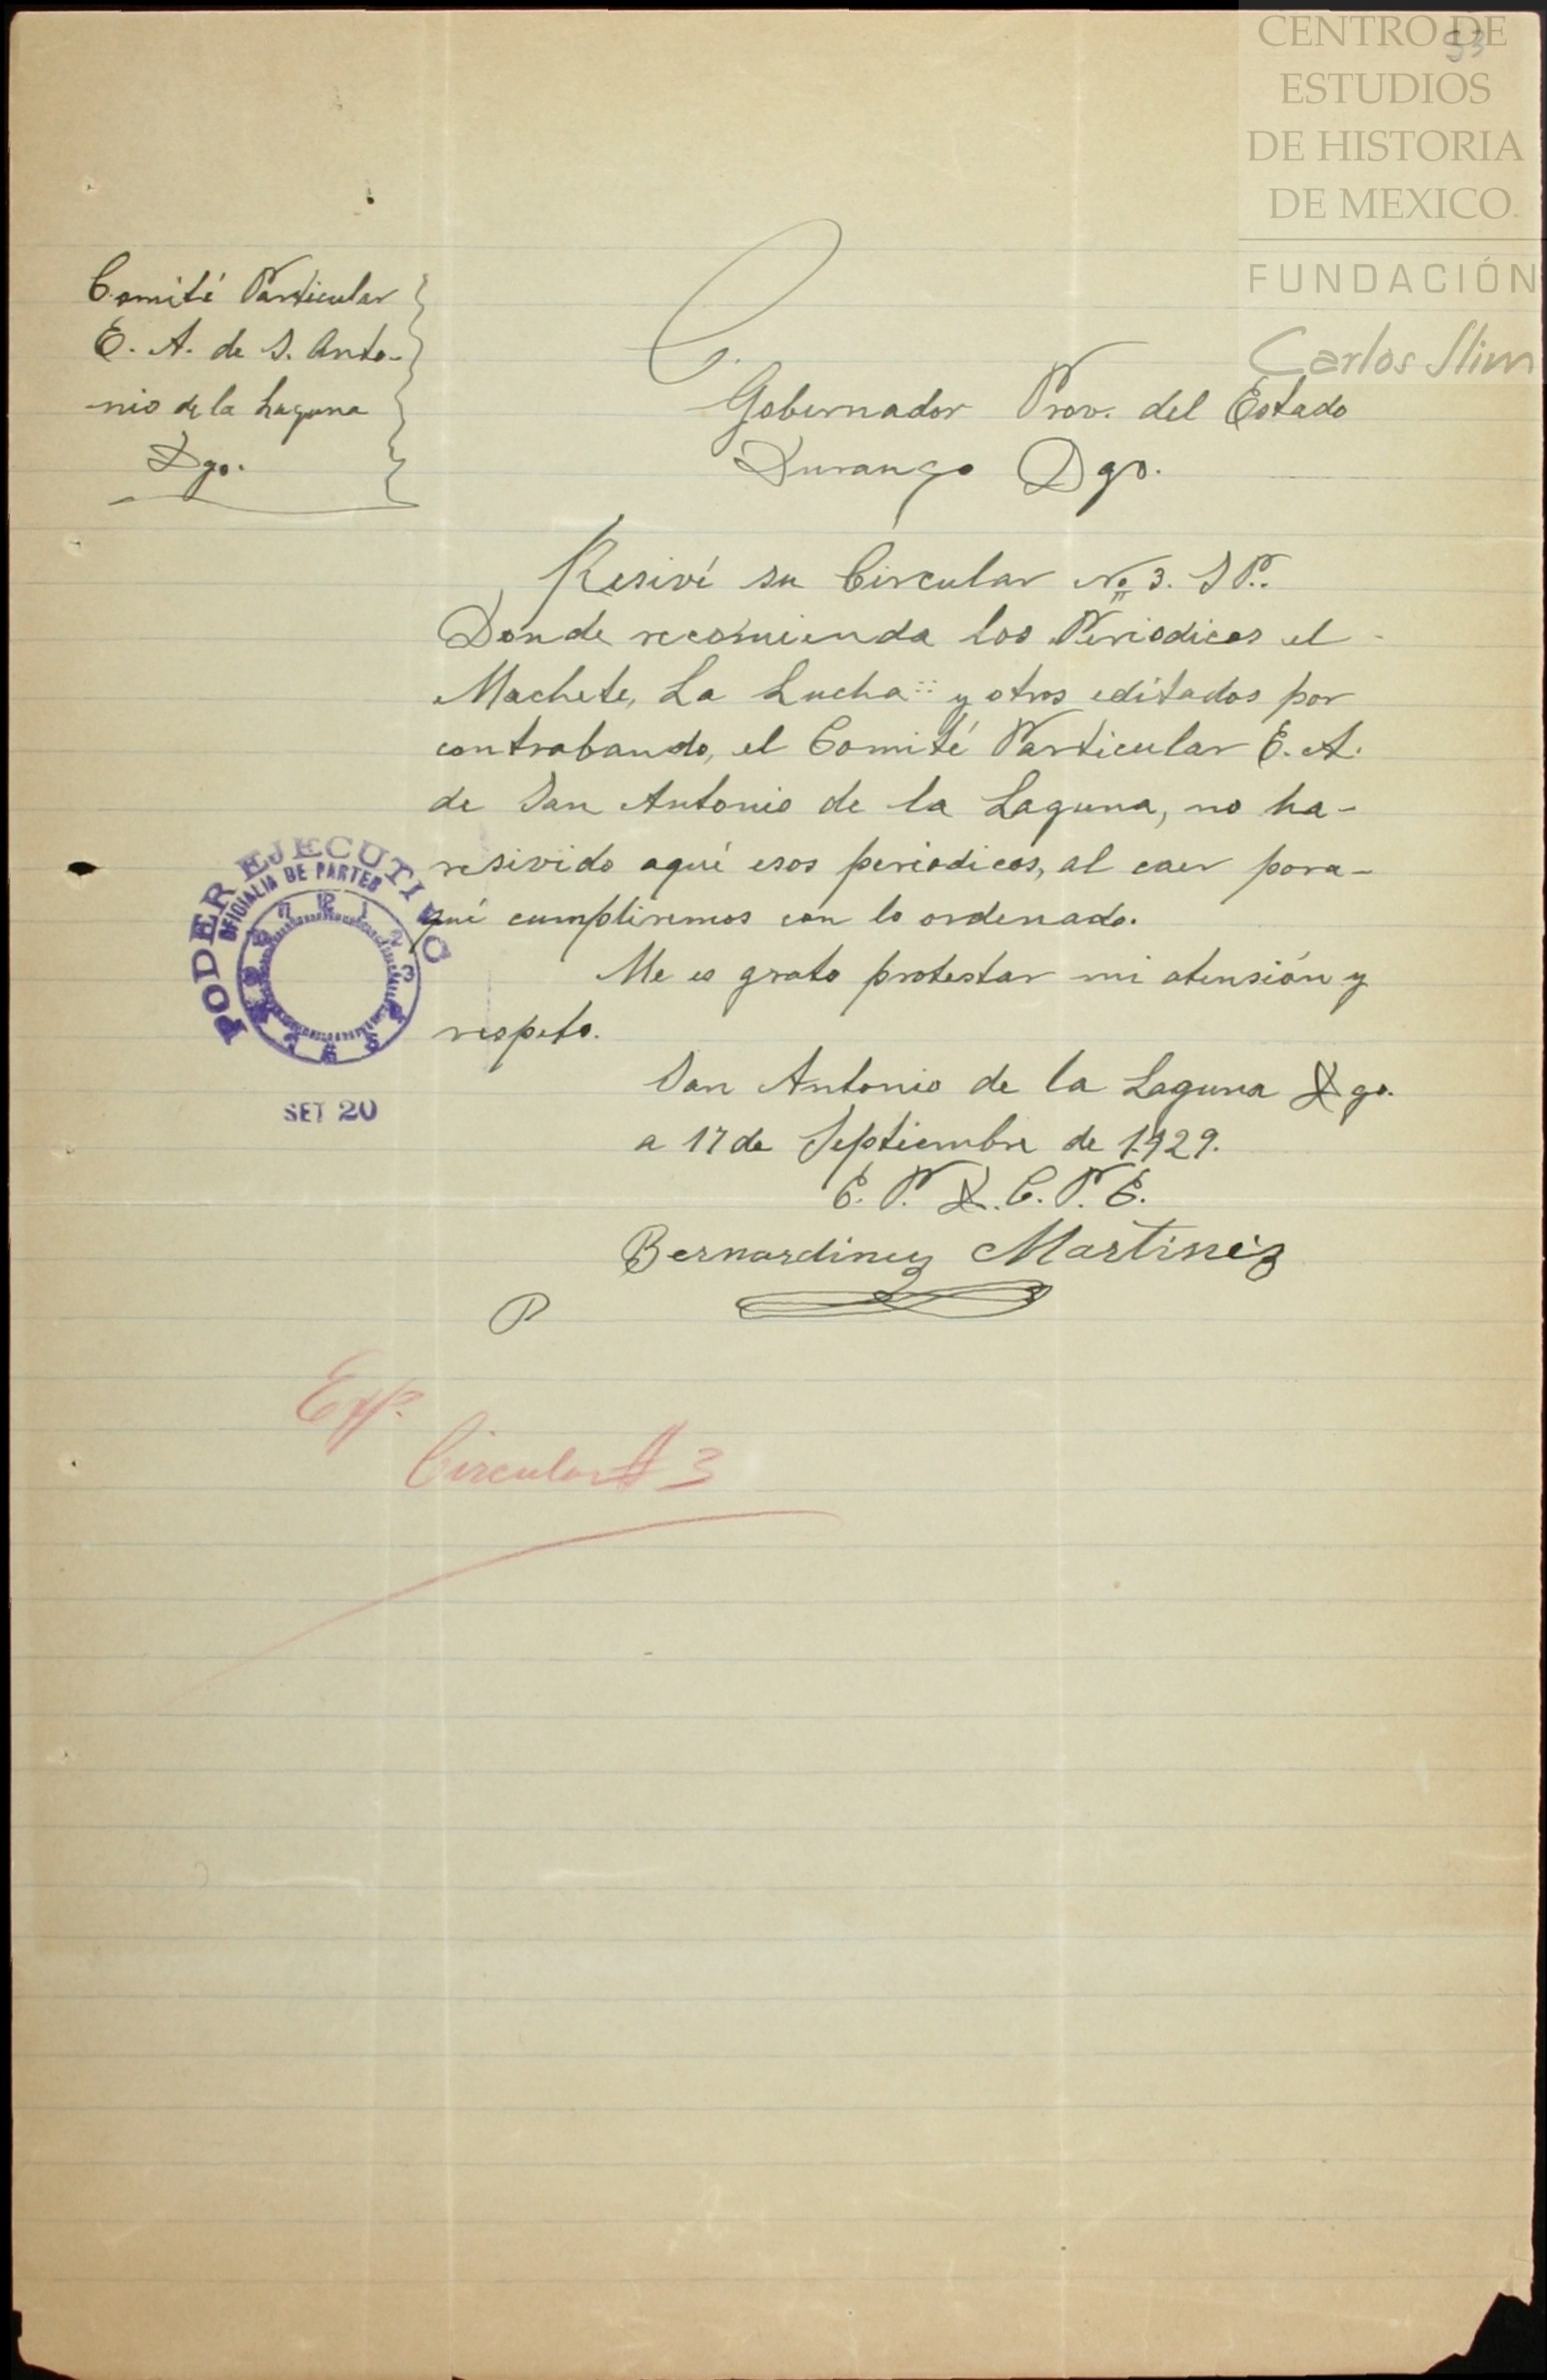 CENTRO DE
ESTUDIOS
DE HISTORIA
DE MEXICO.
FUNDACIÓN
Carlos Slim
53
Comité Particular
E. A. de S. Anto-
nio de la Laguna
Dgo.
C.
Gobernador Prov. del Estado
Durango Dgo.
Resiví su Circular No 3. S P.
Donde recomienda los Periodicos el
Machete, La Lucha y otros editados por
contrabando, el Comité Particular E. A.
de San Antonio de la Laguna, no ha-
resivido aquí esos periodicos, al caer pora-
quí cumpliremos con lo ordenado.
Me es grato protestar mi atensión y
respeto.
San Antonio de la Laguna Dgo.
a 17 de Septiembre de 1929.
E. P. D. C. P. E.
Bernardino Martinez
P
PODER EJECUTIVO
OFICIALIA DE PARTES
SET 20
Exp.
Circular # 3